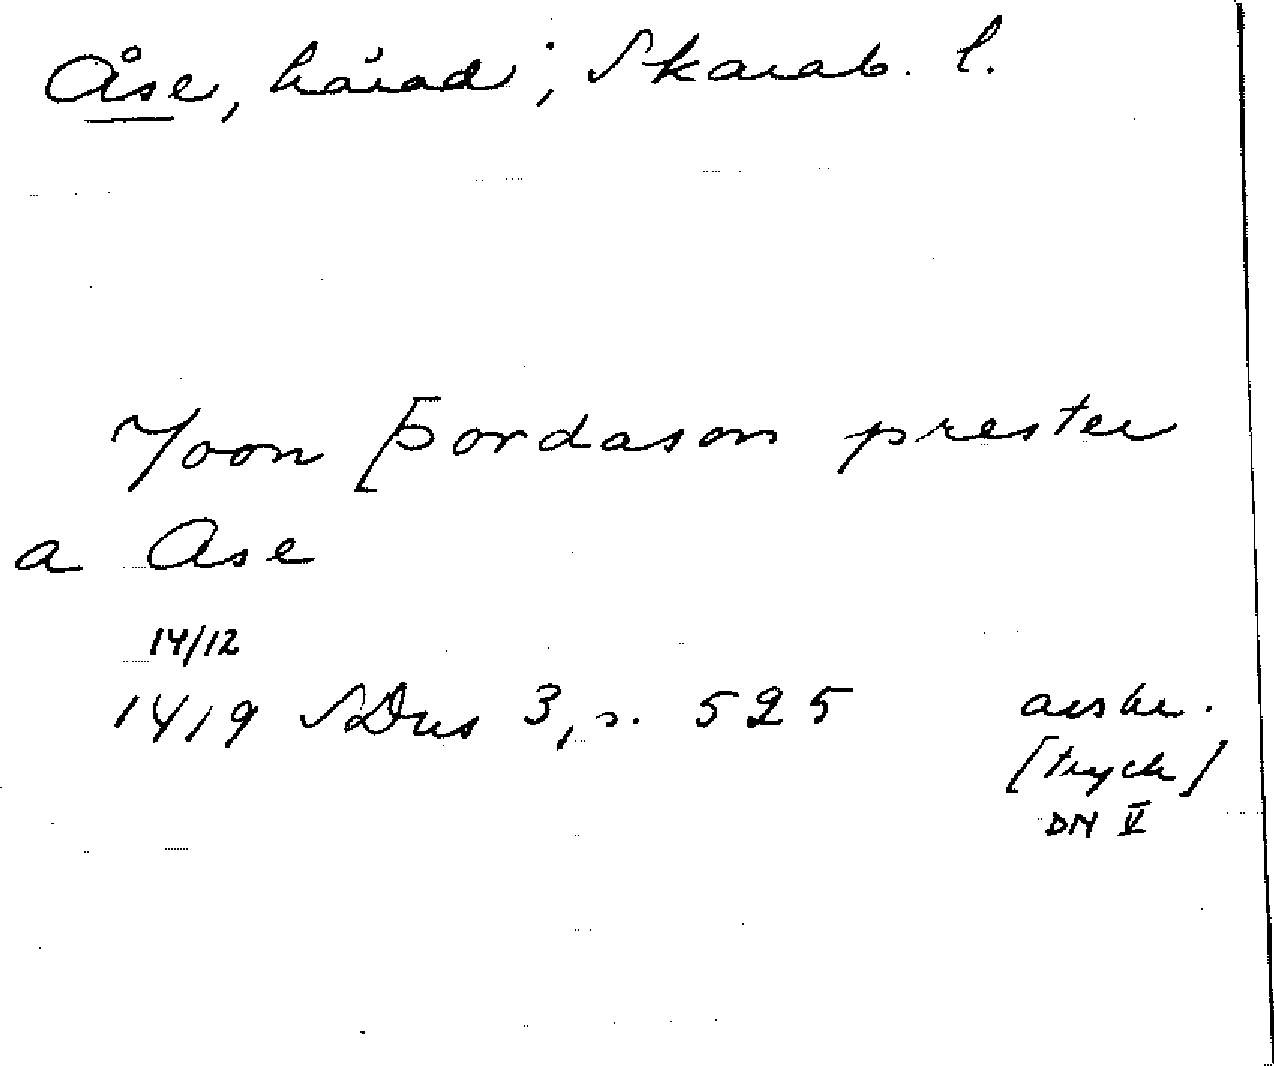 Åse, härad; Skarab. l.
Joon [Þordason prester
a Ase
14/12
1419 SDns 3, s. 525 avskr.
[tryck]
DN V